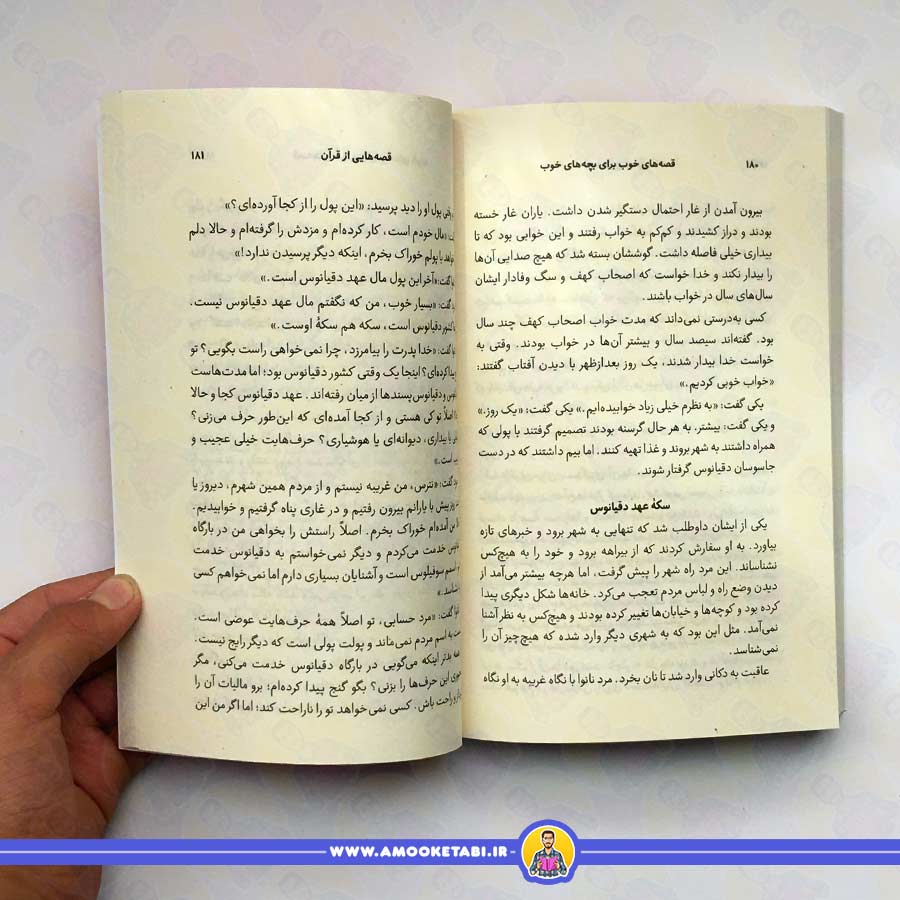 ۱۸۰
قصه‌های خوب برای بچه‌های خوب
بیرون آمدن از غار احتمال دستگیر شدن داشت. یاران غار خسته
بودند و دراز کشیدند و کم‌کم به خواب رفتند و این خوابی بود که تا
بیداری خیلی فاصله داشت. گوششان بسته شد که هیچ صدایی آن‌ها
را بیدار نکند و خدا خواست که اصحاب کهف و سگ وفادار ایشان
سال‌های سال در خواب باشند.
کسی به‌درستی نمی‌داند که مدت خواب اصحاب کهف چند سال
بود. گفته‌اند سیصد سال و بیشتر آن‌ها در خواب بودند. وقتی به
خواست خدا بیدار شدند، یک روز بعدازظهر با دیدن آفتاب گفتند:
«خواب خوبی کردیم.»
یکی گفت: «به نظرم خیلی زیاد خوابیده‌ایم.» یکی گفت: «یک روز.»
و یکی گفت: بیشتر. به هر حال گرسنه بودند تصمیم گرفتند با پولی که
همراه داشتند به شهر بروند و غذا تهیه کنند. اما بیم داشتند که در دست
جاسوسان دقیانوس گرفتار شوند.
سکهٔ عهد دقیانوس
یکی از ایشان داوطلب شد که تنهایی به شهر برود و خبرهای تازه
بیاورد. به او سفارش کردند که از بیراهه برود و خود را به هیچ‌کس
نشناساند. این مرد راه شهر را پیش گرفت، اما هرچه بیشتر می‌آمد از
دیدن وضع راه و لباس مردم تعجب می‌کرد. خانه‌ها شکل دیگری پیدا
کرده بود و کوچه‌ها و خیابان‌ها تغییر کرده بودند و هیچ‌کس به نظر آشنا
نمی‌آمد. مثل این بود که به شهری دیگر وارد شده که هیچ‌چیز آن را
نمی‌شناسد.
عاقبت به دکانی وارد شد تا نان بخرد. مرد نانوا با نگاه غریبه به او نگاه
قصه‌هایی از قرآن
۱۸۱
پول او را دید پرسید: «این پول را از کجا آورده‌ای؟»
«مال خودم است، کار کرده‌ام و مزدش را گرفته‌ام و حالا دلم
با پولم خوراک بخرم، اینکه دیگر پرسیدن ندارد!»
گفت: «آخر این پول مال عهد دقیانوس است.»
گفت: «بسیار خوب، من که نگفتم مال عهد دقیانوس نیست.
کشور دقیانوس است، سکه هم سکهٔ اوست.»
گفت: «خدا پدرت را بیامرزد، چرا نمی‌خواهی راست بگویی؟ تو
پیدا کرده‌ای؟ اینجا یک وقتی کشور دقیانوس بود؛ اما مدت‌هاست
و دقیانوس‌پسندها از میان رفته‌اند. عهد دقیانوس کجا و حالا
اصلاً تو کی هستی و از کجا آمده‌ای که این‌طور حرف می‌زنی؟
یا بیداری، دیوانه‌ای یا هوشیاری؟ حرف‌هایت خیلی عجیب و
است.»
گفت: «نترس، من غریبه نیستم و از مردم همین شهرم، دیروز یا
پیش با یارانم بیرون رفتیم و در غاری پناه گرفتیم و خوابیدیم.
من آمده‌ام خوراک بخرم. اصلاً راستش را بخواهی من در بارگاه
خدمت می‌کردم و دیگر نمی‌خواستم به دقیانوس خدمت
اسمم سوفیلوس است و آشنایان بسیاری دارم اما نمی‌خواهم کسی
گفت: «مرد حسابی، تو اصلاً همهٔ حرف‌هایت عوضی است.
به اسم مردم نمی‌ماند و پولت پولی است که دیگر رایج نیست.
بدتر اینکه می‌گویی در بارگاه دقیانوس خدمت می‌کنی، مگر
این حرف‌ها را بزنی؟ بگو گنج پیدا کرده‌ام؛ برو مالیات آن را
و راحت باش. کسی نمی‌خواهد تو را ناراحت کند؛ اما اگر من این
WWW.AMOOKETABI.IR